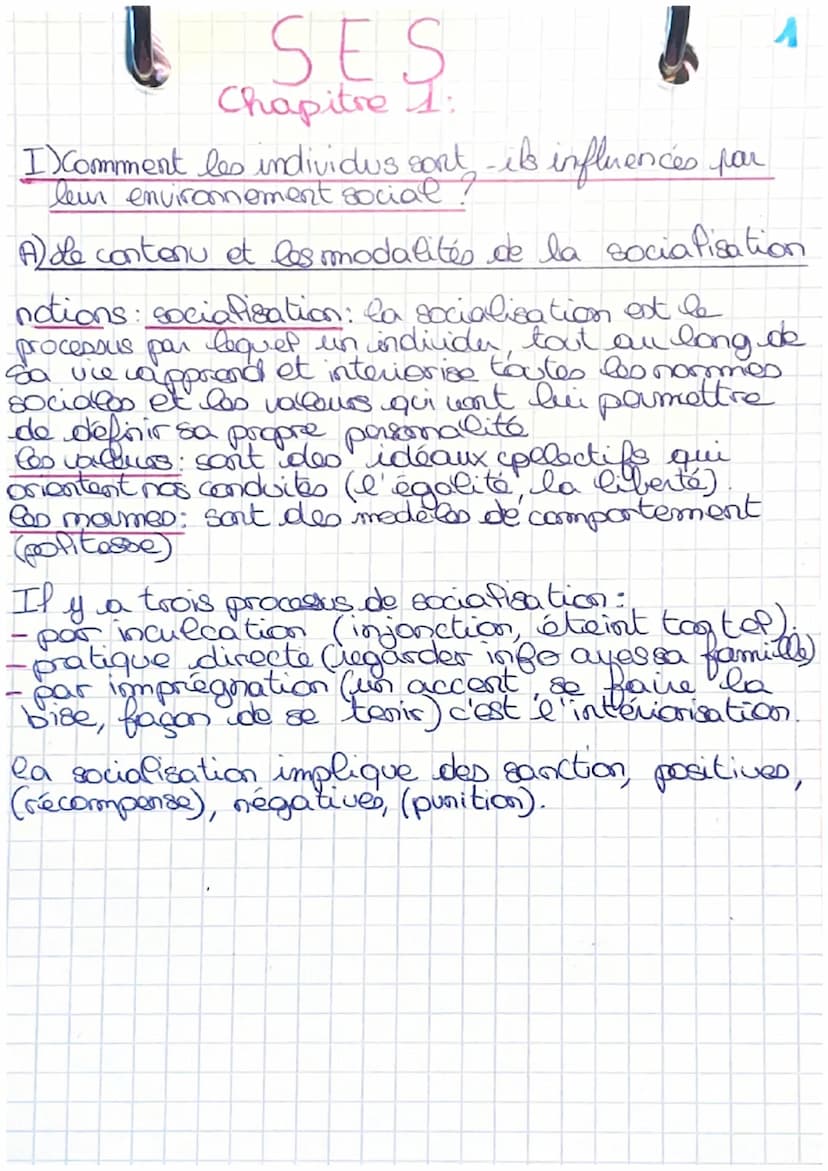 1
SES
Chapitre 1:
I) Comment les individus sont-ils influencés par
leur environnement social ?
A) Le contenu et les modalités de la socialisation
notions: socialisation: la socialisation est le
processus par lequel un individu, tout au long de
sa vie apprend et interiorise toutes les normes
sociales et les valeurs qui vont lui permettre
de définir sa propre personnalité
les valeurs: sont des idéaux collectifs qui
orientent nos conduites (l'égalité, la liberté).
les normes: sont des modèles de comportement
(politesse)
Il y a trois processus de socialisation:
- par inculcation (injonction, éteint ton tel).
- pratique directe (regarder info avec sa famille)
- par imprégnation (un accent, se faire la
bise, façon de se tenir) c'est l'intériorisation.
la socialisation implique des sanction, positives,
(récompense), négatives, (punition).